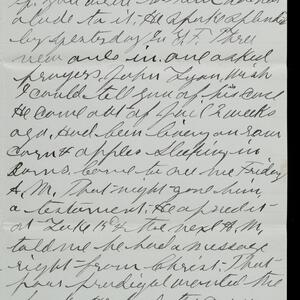 alude to it. He spoke splend
by yesterday in Y.F. Three
new ones in. one asked
prayers, John Lyon, Wish
I could tell you of his case
He come out of Jail 2 weeks
ago, Had been living on raw
Corn & apples Sleeping in
Barns, Come to see me Friday
A.M, That night gave him
a testament. He read it
at Luke 15 & the next A.M,
told me he had a message
right from Christ. That
poor prodigal wanted the